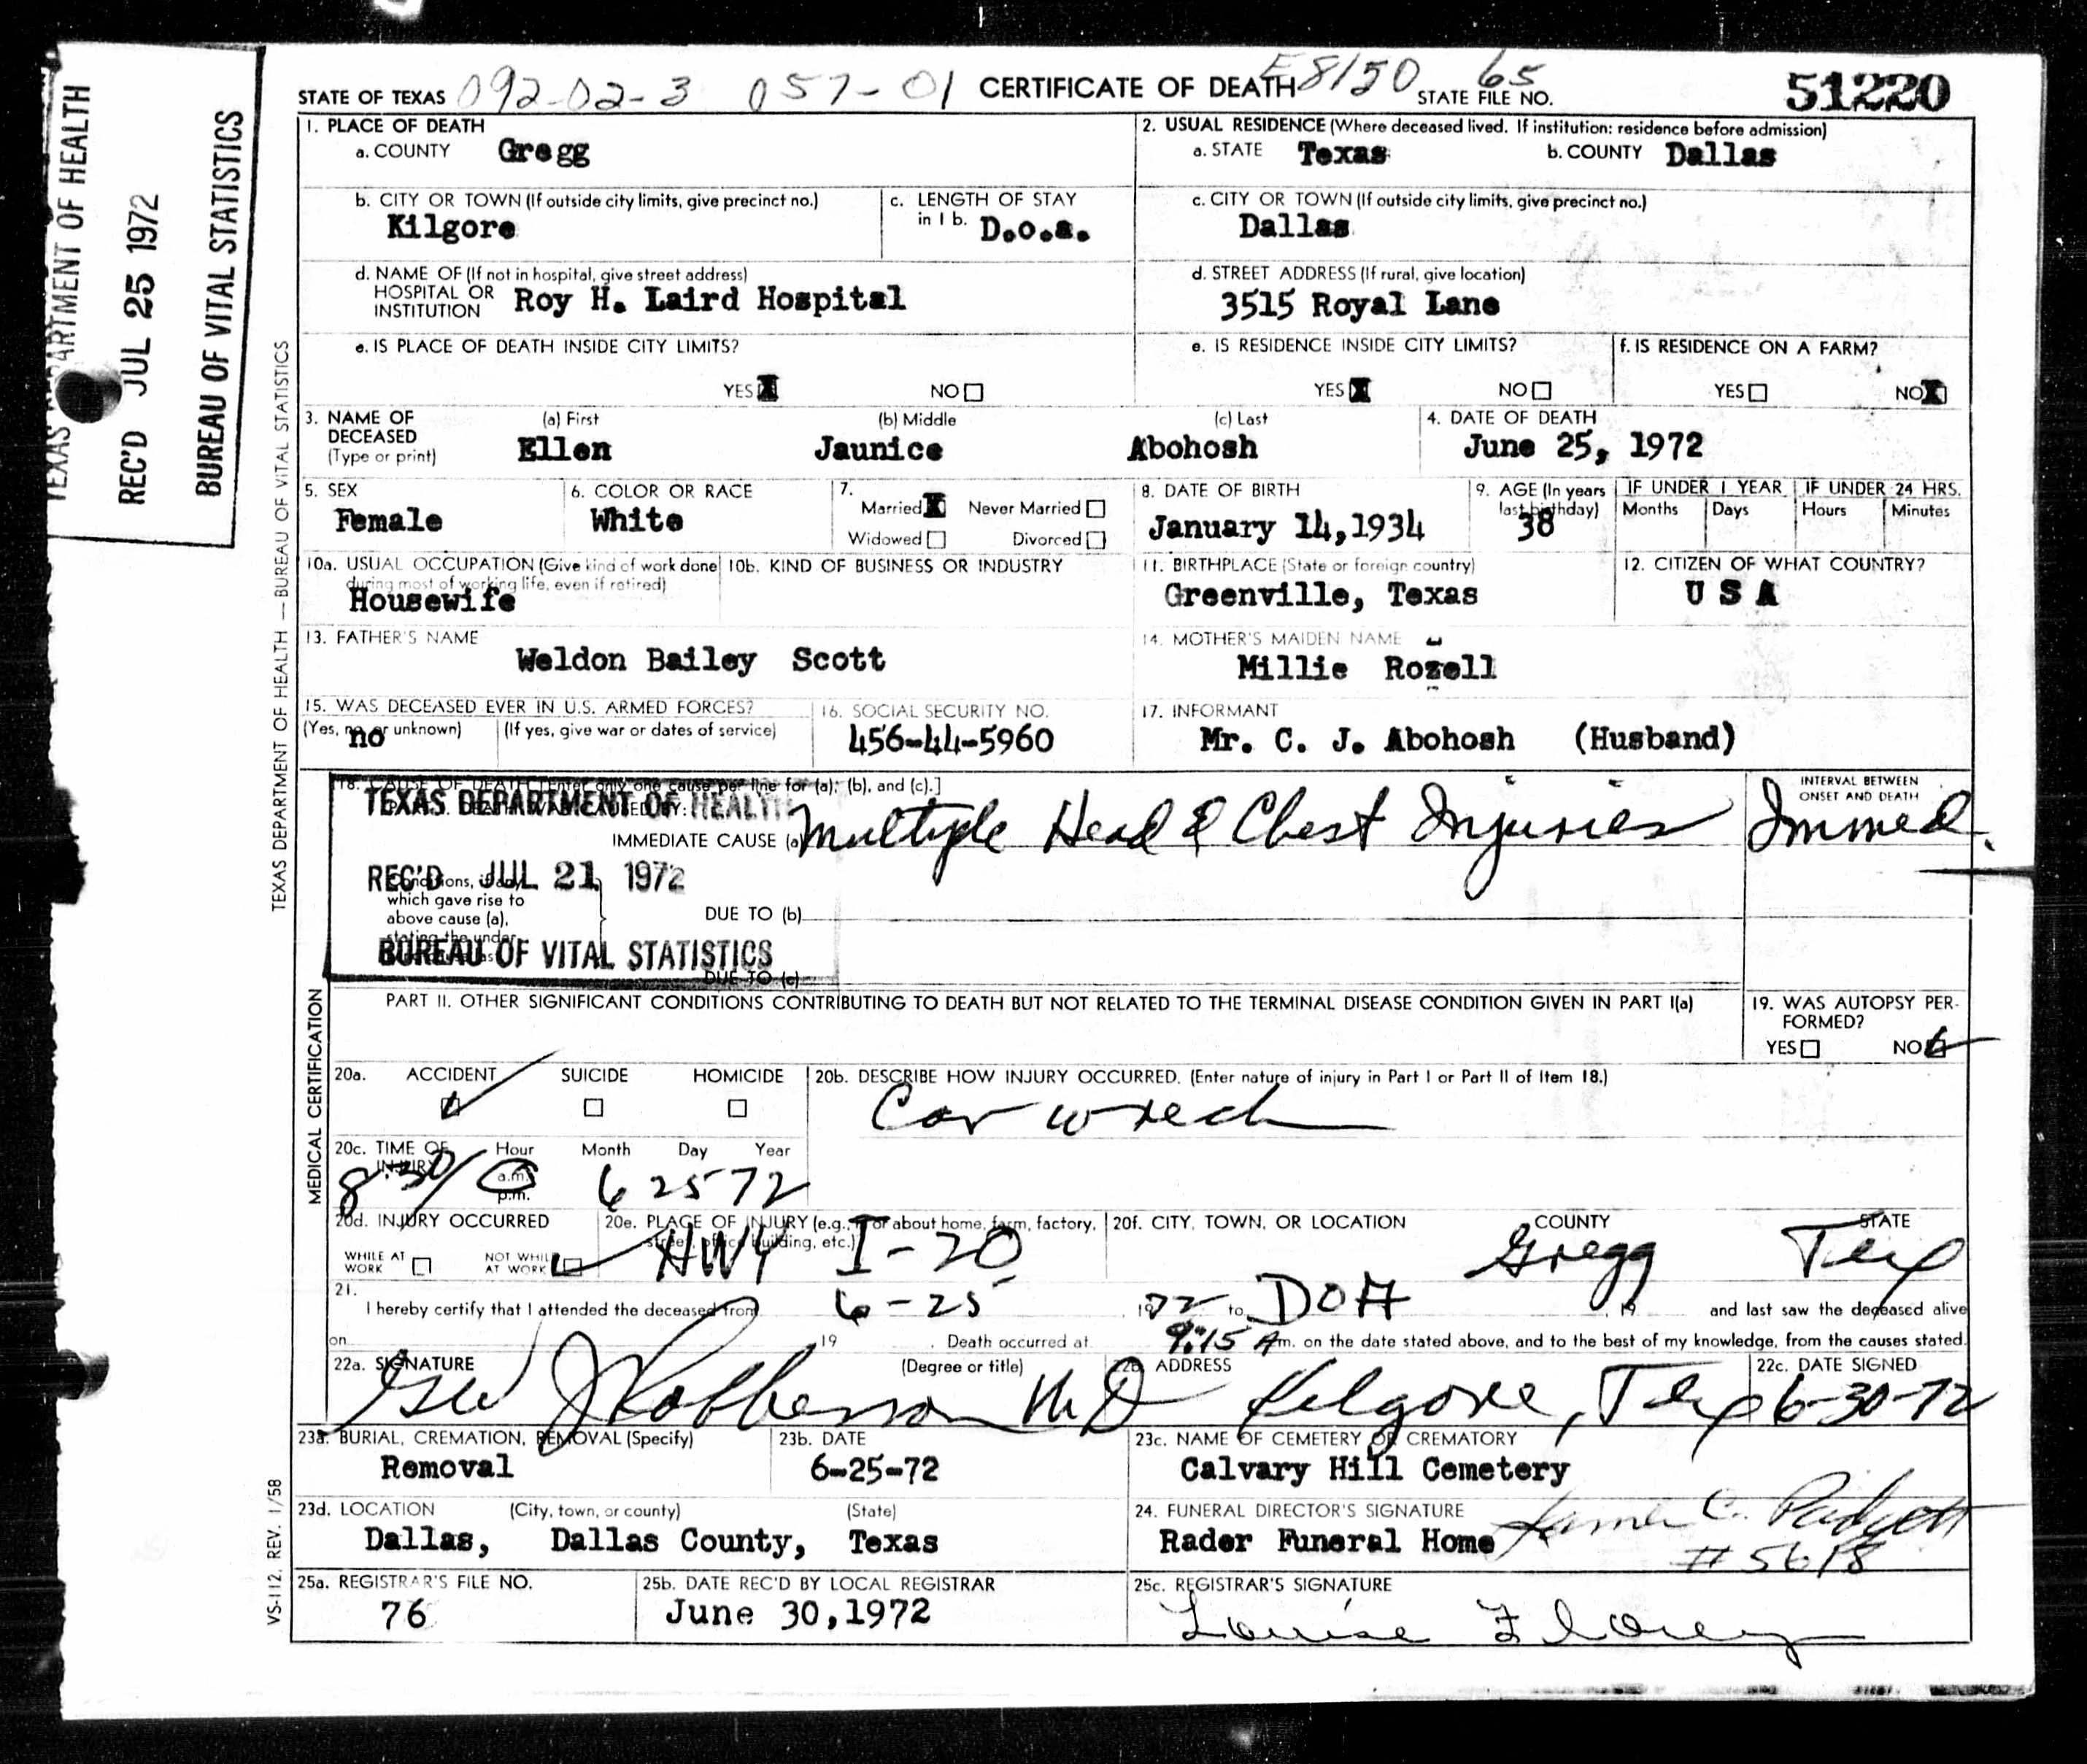 TEXAS DEPARTMENT OF HEALTH
REC'D JUL 25 1972
BUREAU OF VITAL STATISTICS
TEXAS DEPARTMENT OF HEALTH — BUREAU OF VITAL STATISTICS
STATE OF TEXAS 092-02-3 057-01 CERTIFICATE OF DEATH E8150 65 STATE FILE NO. 51220
1. PLACE OF DEATH
a. COUNTY Gregg
2. USUAL RESIDENCE (Where deceased lived. If institution: residence before admission)
a. STATE Texas b. COUNTY Dallas
b. CITY OR TOWN (If outside city limits, give precinct no.)
Kilgore
c. LENGTH OF STAY
in 1 b. D.o.a.
c. CITY OR TOWN (If outside city limits, give precinct no.)
Dallas
d. NAME OF (If not in hospital, give street address)
HOSPITAL OR
INSTITUTION Roy H. Laird Hospital
d. STREET ADDRESS (If rural, give location)
3515 Royal Lane
e. IS PLACE OF DEATH INSIDE CITY LIMITS?
YES X NO
e. IS RESIDENCE INSIDE CITY LIMITS?
YES X NO
f. IS RESIDENCE ON A FARM?
YES NO X
3. NAME OF
DECEASED
(Type or print)
(a) First (b) Middle (c) Last
Ellen Jaunice Abohosh
4. DATE OF DEATH
June 25, 1972
5. SEX
Female
6. COLOR OR RACE
White
7.
Married X Never Married
Widowed Divorced
8. DATE OF BIRTH
January 14,1934
9. AGE (In years
last birthday)
38
IF UNDER 1 YEAR IF UNDER 24 HRS.
Months Days Hours Minutes
10a. USUAL OCCUPATION (Give kind of work done
during most of working life, even if retired)
Housewife
10b. KIND OF BUSINESS OR INDUSTRY
11. BIRTHPLACE (State or foreign country)
Greenville, Texas
12. CITIZEN OF WHAT COUNTRY?
U S A
13. FATHER'S NAME
Weldon Bailey Scott
14. MOTHER'S MAIDEN NAME
Millie Rozell
15. WAS DECEASED EVER IN U.S. ARMED FORCES?
(Yes, no, or unknown) (If yes, give war or dates of service)
no
16. SOCIAL SECURITY NO.
456-44-5960
17. INFORMANT
Mr. C. J. Abohosh (Husband)
MEDICAL CERTIFICATION
18. CAUSE OF DEATH [Enter only one cause per line for (a), (b), and (c).]
TEXAS DEPARTMENT OF HEALTH
REC'D JUL 21 1972
BUREAU OF VITAL STATISTICS
IMMEDIATE CAUSE (a) Multiple Head & Chest Injuries
INTERVAL BETWEEN
ONSET AND DEATH
Immed.
Conditions, if any,
which gave rise to
above cause (a),
stating the under-
DUE TO (b)
DUE TO (c)
PART II. OTHER SIGNIFICANT CONDITIONS CONTRIBUTING TO DEATH BUT NOT RELATED TO THE TERMINAL DISEASE CONDITION GIVEN IN PART I(a)
19. WAS AUTOPSY PER-
FORMED?
YES NO
20a. ACCIDENT SUICIDE HOMICIDE
20b. DESCRIBE HOW INJURY OCCURRED. (Enter nature of injury in Part I or Part II of Item 18.)
Car wreck
20c. TIME OF
INJURY
Hour Month Day Year
a.m.
p.m.
8:30 6 25 72
20d. INJURY OCCURRED
WHILE AT
WORK
NOT WHILE
AT WORK
20e. PLACE OF INJURY (e.g., in or about home, farm, factory,
street, office building, etc.)
HWY I-20
20f. CITY, TOWN, OR LOCATION COUNTY STATE
Gregg Tex
21.
I hereby certify that I attended the deceased from 6-25 1972 to DOA, 19 and last saw the deceased alive
on 19 . Death occurred at 9:15 A m. on the date stated above, and to the best of my knowledge, from the causes stated.
22a. SIGNATURE (Degree or title)
M D
22b. ADDRESS
Kilgore, Tex
22c. DATE SIGNED
6-30-72
23a. BURIAL, CREMATION, REMOVAL (Specify)
Removal
23b. DATE
6-25-72
23c. NAME OF CEMETERY OR CREMATORY
Calvary Hill Cemetery
23d. LOCATION (City, town, or county) (State)
Dallas, Dallas County, Texas
24. FUNERAL DIRECTOR'S SIGNATURE
Rader Funeral Home James C. Padgett
# 5618
25a. REGISTRAR'S FILE NO.
76
25b. DATE REC'D BY LOCAL REGISTRAR
June 30,1972
25c. REGISTRAR'S SIGNATURE
Louise Florey
VS-112, REV. 1/58